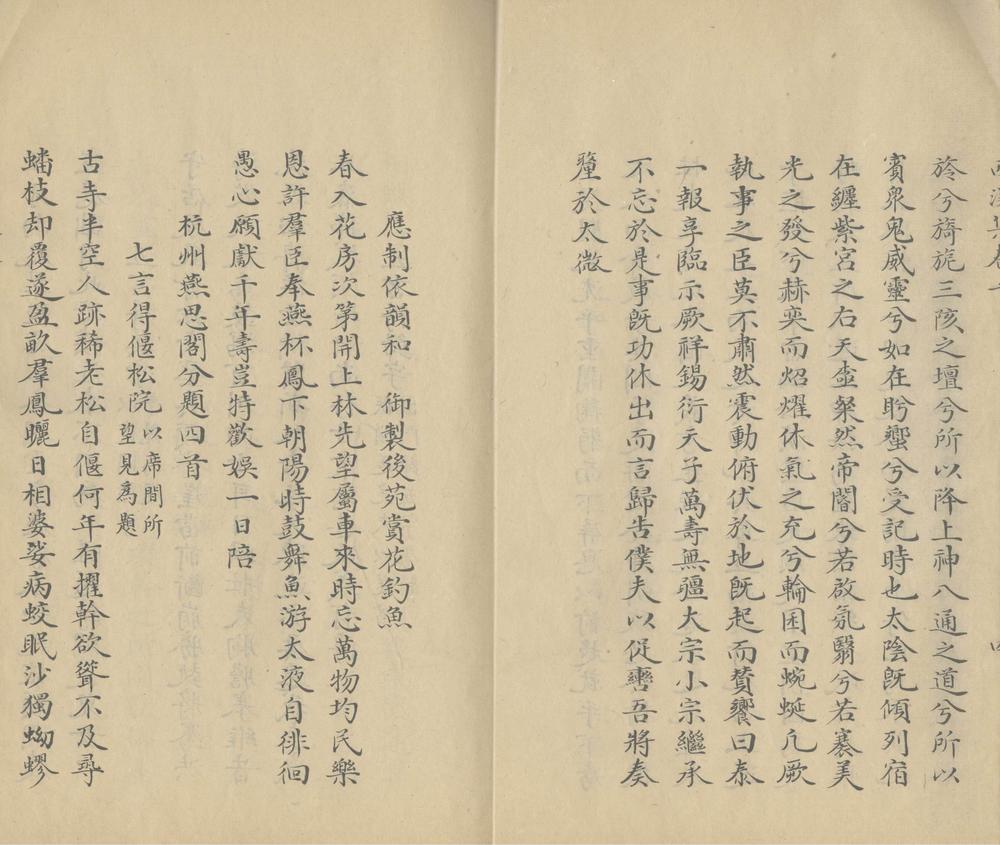 旍兮旖旎三陔之壇兮所以降上神八通之道兮所以
賓眾鬼威靈兮如在肹蠁兮受記時也太陰既傾列宿
在纏紫宮之右天壺粲然帝閽兮若啟氛翳兮若褰美
光之發兮赫奕而炤燿休氣之充兮輪囷而蜿蜒凢厥
執事之臣莫不肅然震動俯伏於地既起而賛饗曰泰
一報享臨示厥祥錫衍天子萬壽無疆大宗小宗繼承
不忘於是事既功休出而言歸告僕夫以促轡吾將奏
釐於太微
應制依韻和 御製後苑賞花釣魚
春入花房次第開上林先望屬車來時忘萬物均民樂
恩許羣臣奉燕杯鳳下朝陽時鼓舞魚游太液自徘徊
愚心願獻千年壽豈特歡娛一日陪
杭州燕思閣分題四首
七言得偃松院以席間所望見為題
古寺半空人跡稀老松自偃何年有擢幹欲聳不及尋
蟠枝却覆遂盈畝羣鳳曬日相婆娑病蛟眠沙獨蚴蟉